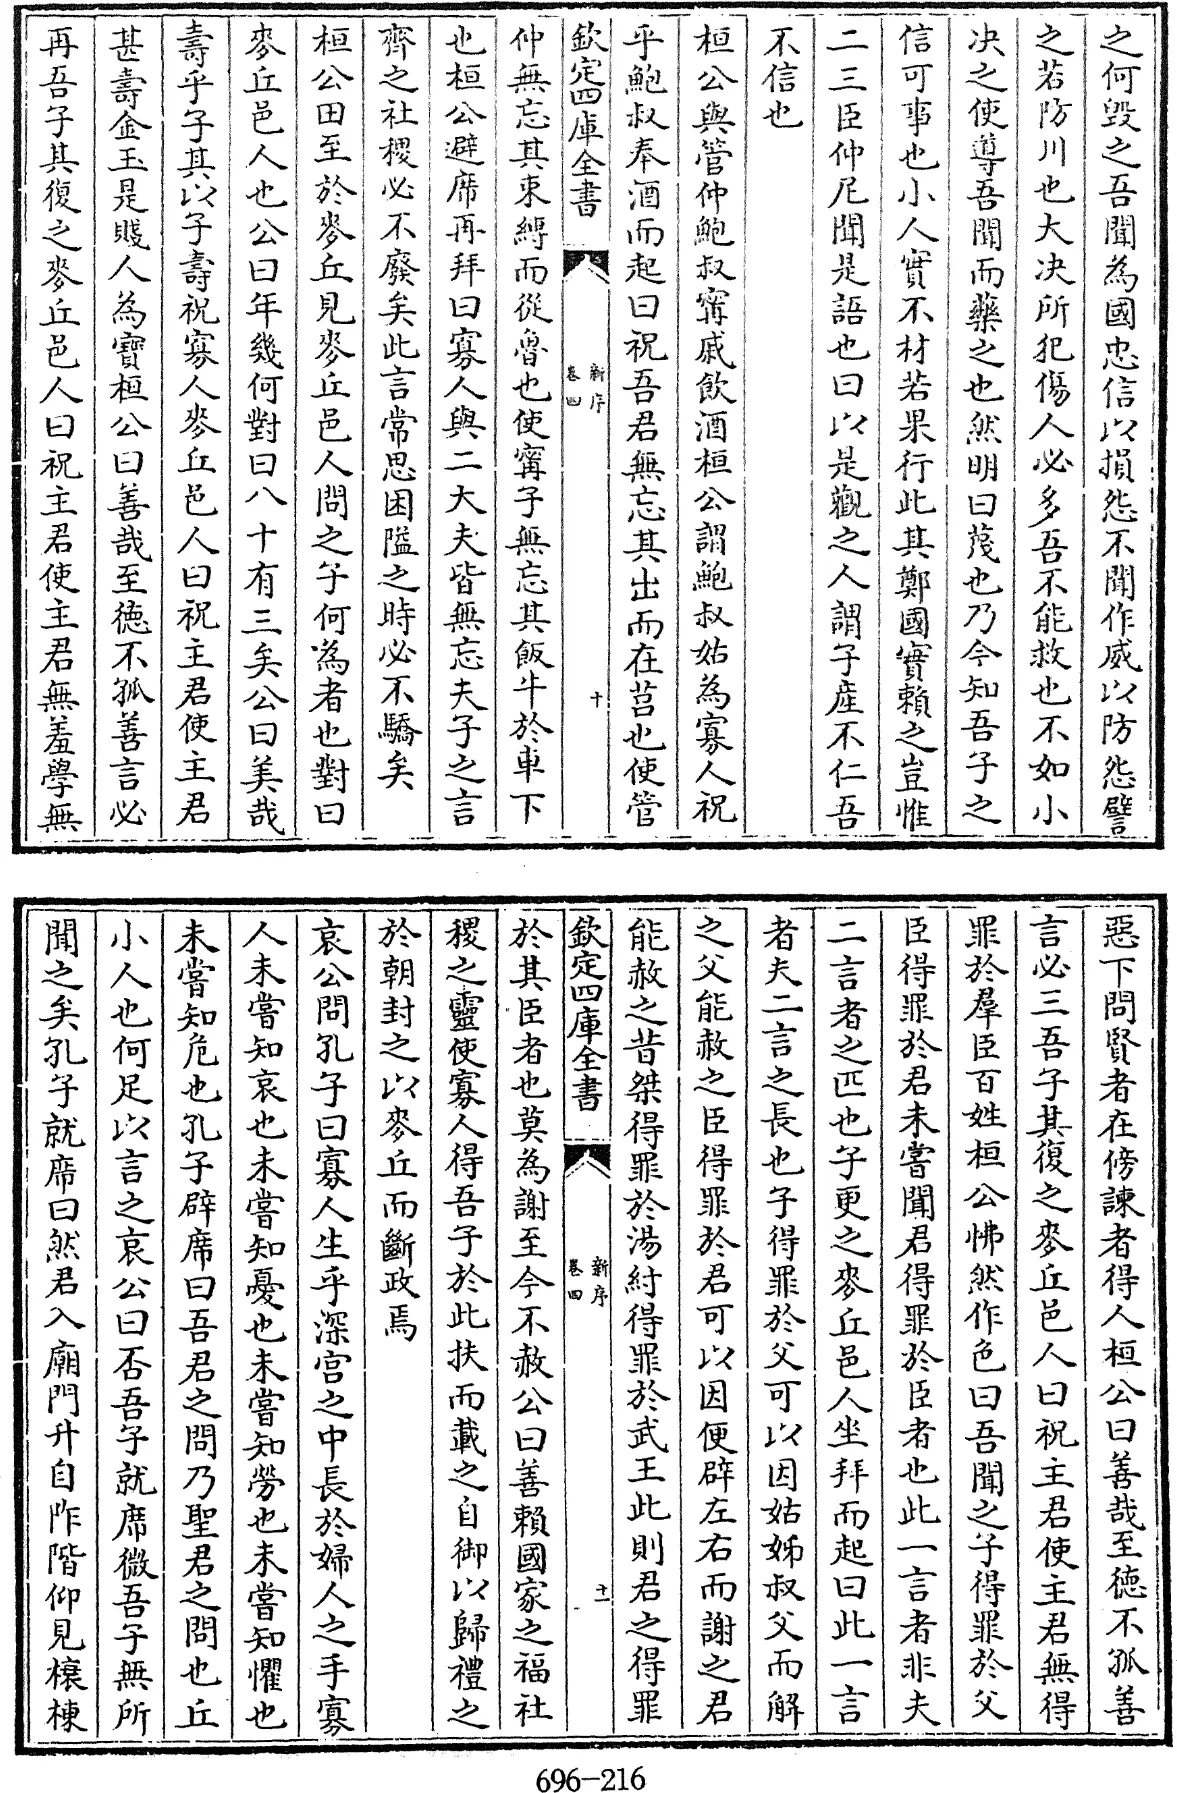 之何毀之吾聞為國忠信以損怨不聞作威以防怨譬
之若防川也大决所犯傷人必多吾不能救也不如小
决之使導吾聞而藥之也然明曰蔑也乃今知吾子之
信可事也小人實不材若果行此其鄭國實賴之豈惟
二三臣仲尼聞是語也曰以是觀之人謂子産不仁吾
不信也
桓公與管仲鮑叔甯戚飲酒桓公謂鮑叔姑為寡人祝
乎鮑叔奉酒而起曰祝吾君無忘其出而在莒也使管
欽定四庫全書
新序
卷四
十
仲無忘其束縛而從魯也使甯子無忘其飯牛於車下
也桓公避席再拜曰寡人與二大夫皆無忘夫子之言
齊之社稷必不廢矣此言常思困隘之時必不驕矣
桓公田至於麥丘見麥丘邑人問之子何為者也對曰
麥丘邑人也公曰年幾何對曰八十有三矣公曰美哉
壽乎子其以子壽祝寡人麥丘邑人曰祝主君使主君
甚壽金玉是賤人為寶桓公曰善哉至德不孤善言必
再吾子其復之麥丘邑人曰祝主君使主君無羞學無
惡下問賢者在傍諫者得人桓公曰善哉至德不孤善
言必三吾子其復之麥丘邑人曰祝主君使主君無得
罪於羣臣百姓桓公怫然作色曰吾聞之子得罪於父
臣得罪於君未嘗聞君得罪於臣者也此一言者非夫
二言者之匹也子更之麥丘邑人坐拜而起曰此一言
者夫二言之長也子得罪於父可以因姑姊叔父而解
之父能赦之臣得罪於君可以因便辟左右而謝之君
能赦之昔桀得罪於湯紂得罪於武王此則君之得罪
欽定四庫全書
新序
卷四
十一
於其臣者也莫為謝至今不赦公曰善賴國家之福社
稷之靈使寡人得吾子於此扶而載之自御以歸禮之
於朝封之以麥丘而斷政焉
哀公問孔子曰寡人生乎深宫之中長於婦人之手寡
人未嘗知哀也未嘗知憂也未嘗知勞也未嘗知懼也
未嘗知危也孔子辟席曰吾君之問乃聖君之問也丘
小人也何足以言之哀公曰否吾子就席微吾子無所
聞之矣孔子就席曰然君入廟門升自阼階仰見榱棟
696-216